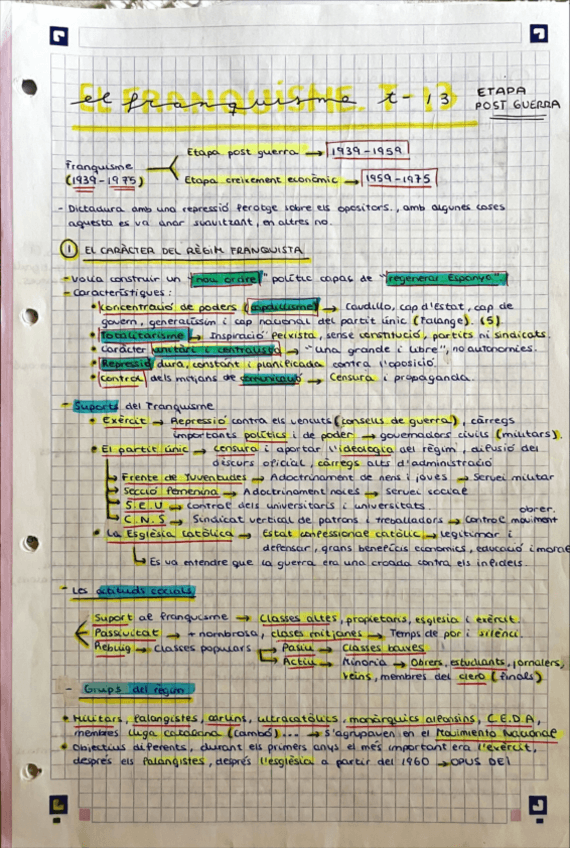 EL FRANQUISME. T-13
el franquisme t-13
ETAPA
POST GUERRA
Franquisme
(1939-1975)
Etapa post guerra → 1939-1959
Etapa creixement econòmic → 1959-1975
- Dictadura amb una repressió feratge sobre els opositors., amb algunes coses
aquesta es va anar suavitzant, en altres no.
1 EL CARÀCTER DEL RÈGIM FRANQUISTA
- Volia construir un "nou ordre" polític capaç de "regenerar Espanya".
- Característiques:
• Concentració de poders (caudillisme) → Caudillo, cap d'Estat, cap de
govern, generalíssim i cap nacional del partit únic (Falange). (S)
• Totalitarisme → Inspiració feixista, sense constitució, partits ni sindicats.
• Caràcter unitari i centralista → "una grande i libre", no autonomies.
• Repressió dura, constant i planificada contra l'oposició.
• Control dels mitjans de comunicació → Censura i propaganda.
- Suports del franquisme
• Exèrcit → Repressió contra els vençuts (consells de guerra), càrregs
importants polítics i de poder → governadors civils (militars).
• El partit únic → censura i aportar l'ideologia del règim, difusió del
discurs oficial, càrregs alts d'administració
→ Frente de Juventudes → Adoctrinament de nens i joves → Servei militar
→ Secció Femenina → Adoctrinament noies → Servei social
→ S.E.U → Control dels universitaris i universitats.
→ C.N.S → Sindicat vertical de patrons i treballadors → Control moviment
obrer.
• La Església catòlica → Estat confessional catòlic → Legitimar i
defensar, grans beneficis econòmics, educació i moral
→ Es va entendre que la guerra era una croada contra els infidels.
- Les actituds socials
Suport al franquisme → Classes altes, propietaris, església i exèrcit.
Passivitat → + nombrosa, clases mitjanes → Temps de por i silenci.
Rebuig → Classes populars → Pasiu → Classes baixes
→ Actiu → Minoria → Obrers, estudiants, jornalers,
veïns, membres del clero (finals)
- Grups del règim
• Militars, falangistes, carlins, ultracatòlics, monàrquics alfonsins, C.E.D.A,
membres lliga catalana (Cambó)... → S'agrupaven en el Movimiento Nacional
• Objectius diferents, durant els primers anys el més important era l'exèrcit,
després els falangistes, després l'església a partir del 1960 → OPUS DEI